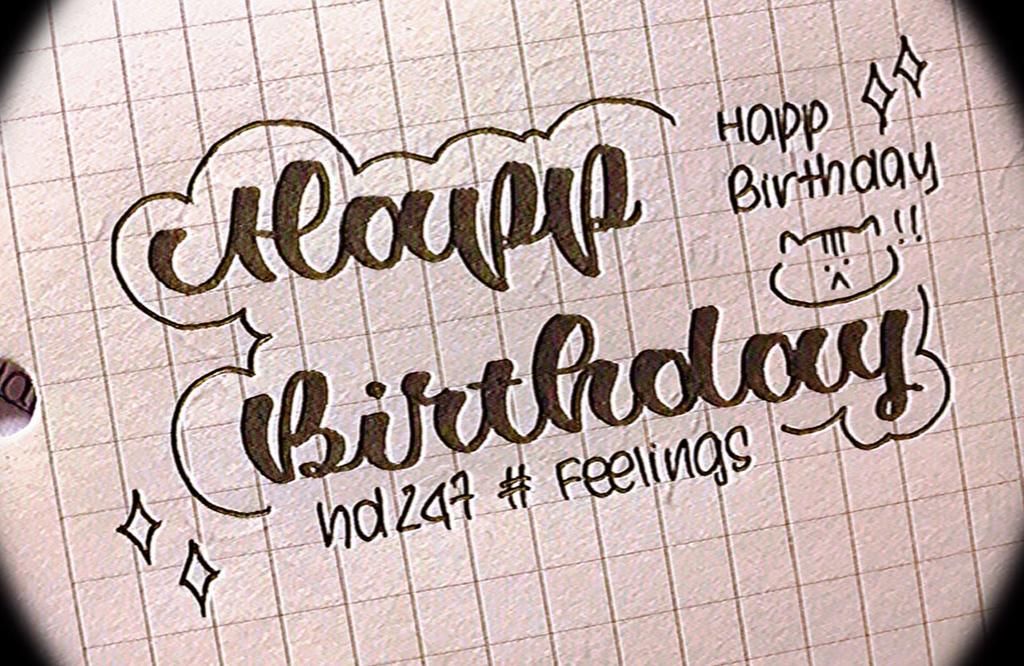 Happ
Birthday
Happ
Birthday
!!
hd247 # Feelings